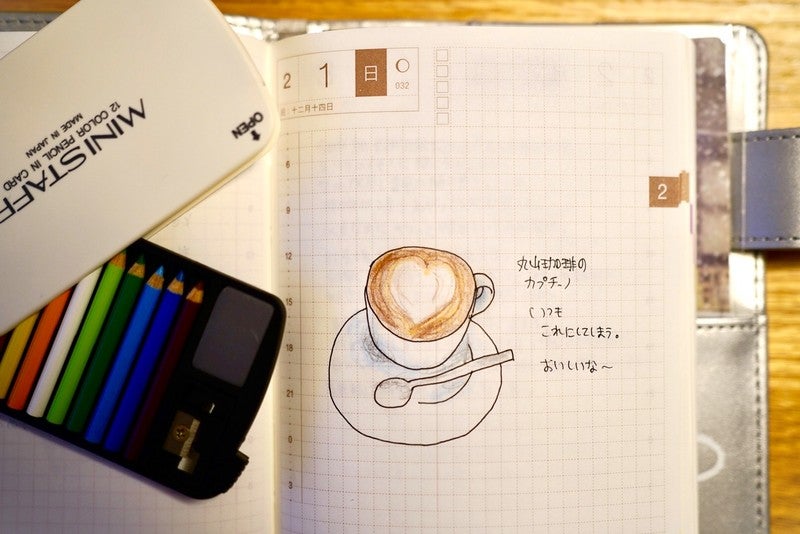 MINI STAFF
12 COLOR PENCIL IN CARD
MADE IN JAPAN
OPEN
2 1 日
032
十二月十四日
6
9
12
15
18
21
0
3
2
丸山珈琲の
カプチーノ
いつも
これにしてしまう。
おいしいな〜